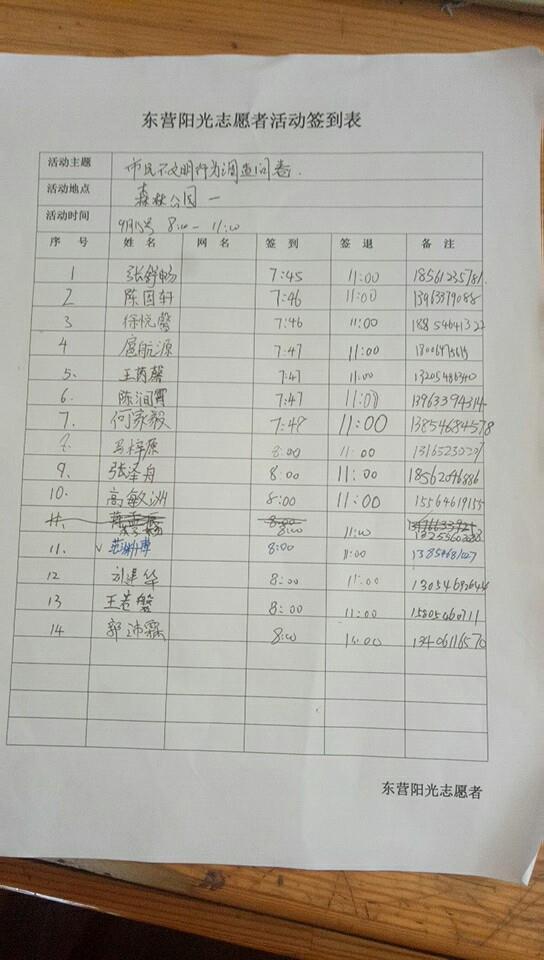 东营阳光志愿者活动签到表
活动主题 市民不文明行为调查问卷.
活动地点 森林公园一
活动时间 9月15号 8:00-11:00
序号 姓名 网名 签到 签退 备注
1 张舒畅 7:45 11:00 18561235781.
2 陈国轩 7:46 11:00 13963379088
3 徐悦馨 7:46 11:00
4 扈航源 7:47 11:00
5. 王芮馨 7:47 11:00 13205486340
6. 陈润霄 7:47 11:00 13963394314
7. 何家毅 7:49 11:00 13854684578
马梓原 8:00 11:00
9. 张泽舟 8:00 11:00 18562096886
10. 高敏洲 8:00 11:00 15564619155
8:00 11:00
11. 8:00 11:00
12 刘建华 8:00 11:00
13 王若馨 8:00 11:00 15805460711
14 郭沛霖 8:00 13406116570
东营阳光志愿者